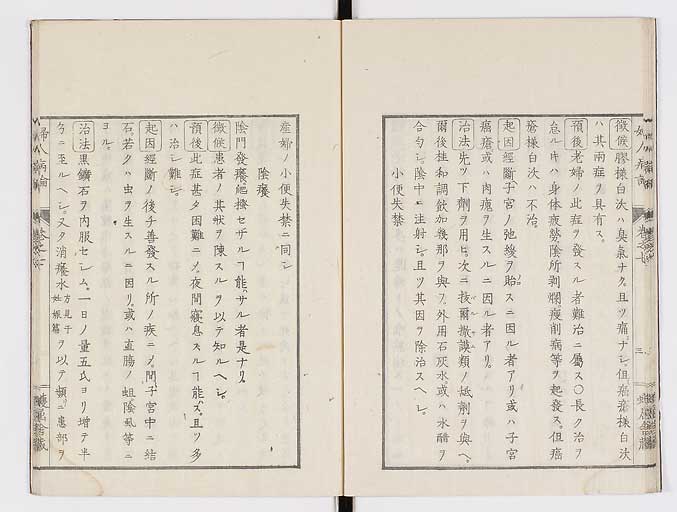 徴候膠様白沃ハ臭氣ナク且ツ痛ナシ但癌瘡様白沃
ハ其兩症ヲ具有ス
預後老婦ノ此症ヲ發スル者難治ニ屬ス○長ク治ヲ
怠ルキハ身体疲勞陰所剥爛瘦削病等ヲ起發ス但癌
瘡様白沃ハ不治
起因經斷子宮ノ弛緩ヲ貽スニ因ル者アリ或ハ子宮
癌瘡或ハ肉瘣ヲ生スルニ因ル者アリ
治法先ツ下劑ヲ用ヒ次ニ撒謨類ノ劑ヲ與ヘ
爾後桂和調飲加幾那ヲ與フ外用石灰水或ハ水醋ヲ
合シ陰中ニ注射シ且ツ其因ヲ除治スヘシ
小便失禁
産婦ノ小便失禁ニ同シ
陰癢
陰門發癢爬搔セザルヿ能ハサル者是ナリ
徴候患者ノ其狀ヲ陳スルヲ以テ知ルヘシ
預後此症甚タ困難ニメ夜間寢息スルヿ能ハズ且ツ多
ハ治シ難シ
起因經斷ノ後チ善發スル所ノ疾ニメ間子宮中ニ結
石若クハ虫ヲ生スルニ因リ或ハ直腸ノ蛆陰虱等ニ
ヨル
治法黒鑛石ヲ内服セシム一日ノ量五氏ヨリ増テ半
ニ至ルヘシ又タ消癢水方見于妊娠篇ヲ以テ頻ニ患部ヲ
婦人病論